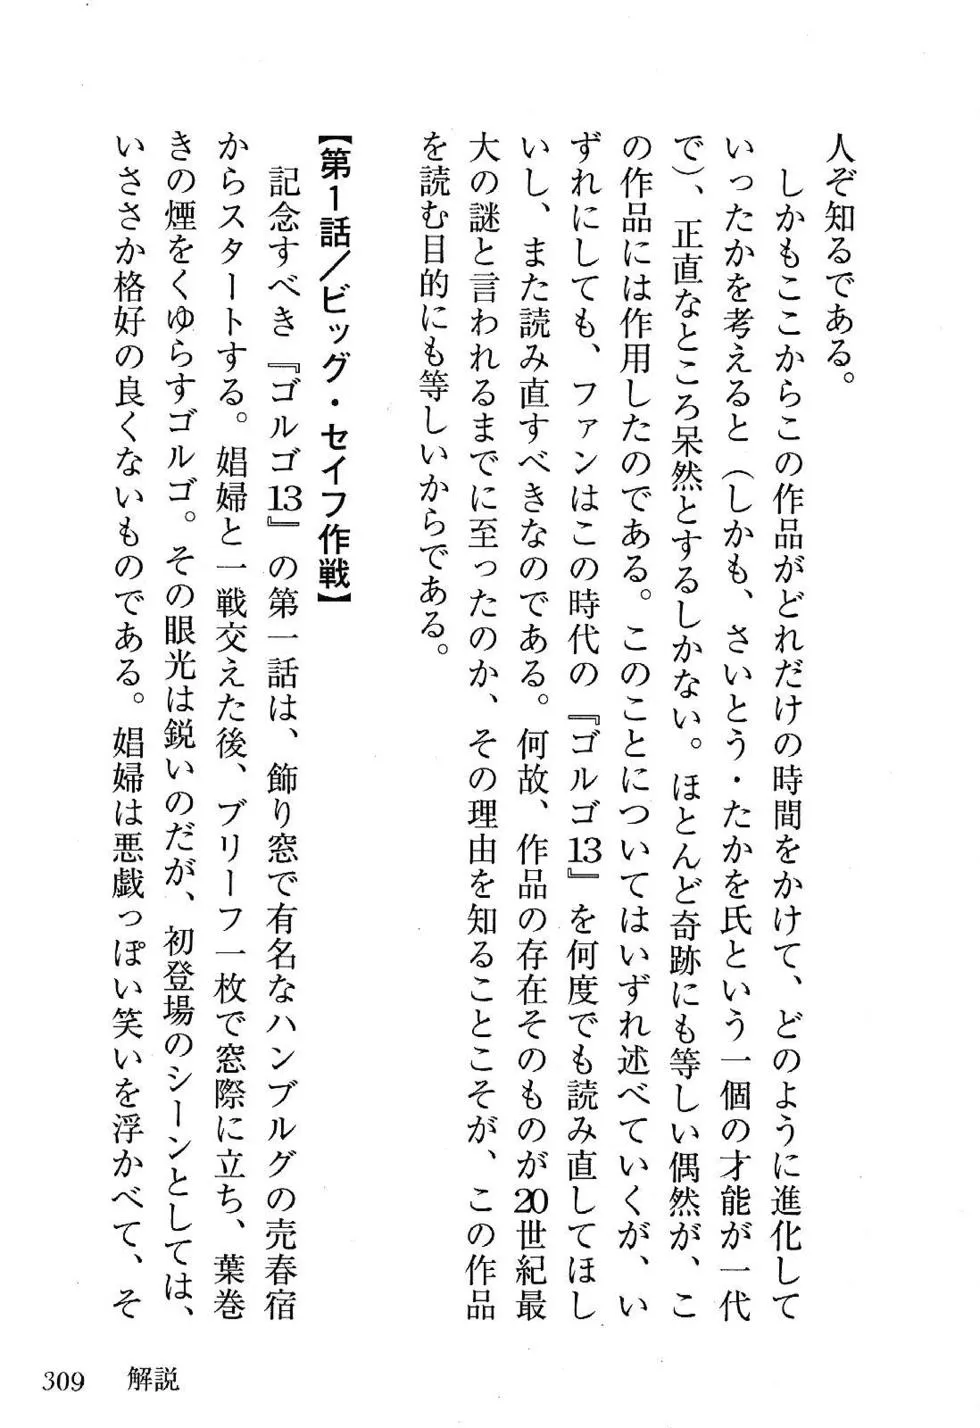 人ぞ知るである。
　しかもここからこの作品がどれだけの時間をかけて、どのように進化して
いったかを考えると（しかも、さいとう・たかを氏という一個の才能が一代
で）、正直なところ呆然とするしかない。ほとんど奇跡にも等しい偶然が、こ
の作品には作用したのである。このことについてはいずれ述べていくが、い
ずれにしても、ファンはこの時代の『ゴルゴ13』を何度でも読み直してほし
いし、また読み直すべきなのである。何故、作品の存在そのものが20世紀最
大の謎と言われるまでに至ったのか、その理由を知ることこそが、この作品
を読む目的にも等しいからである。
【第1話／ビッグ・セイフ作戦】
　記念すべき『ゴルゴ13』の第一話は、飾り窓で有名なハンブルグの売春宿
からスタートする。娼婦と一戦交えた後、ブリーフ一枚で窓際に立ち、葉巻
きの煙をくゆらすゴルゴ。その眼光は鋭いのだが、初登場のシーンとしては、
いささか格好の良くないものである。娼婦は悪戯っぽい笑いを浮かべて、そ
309　解説